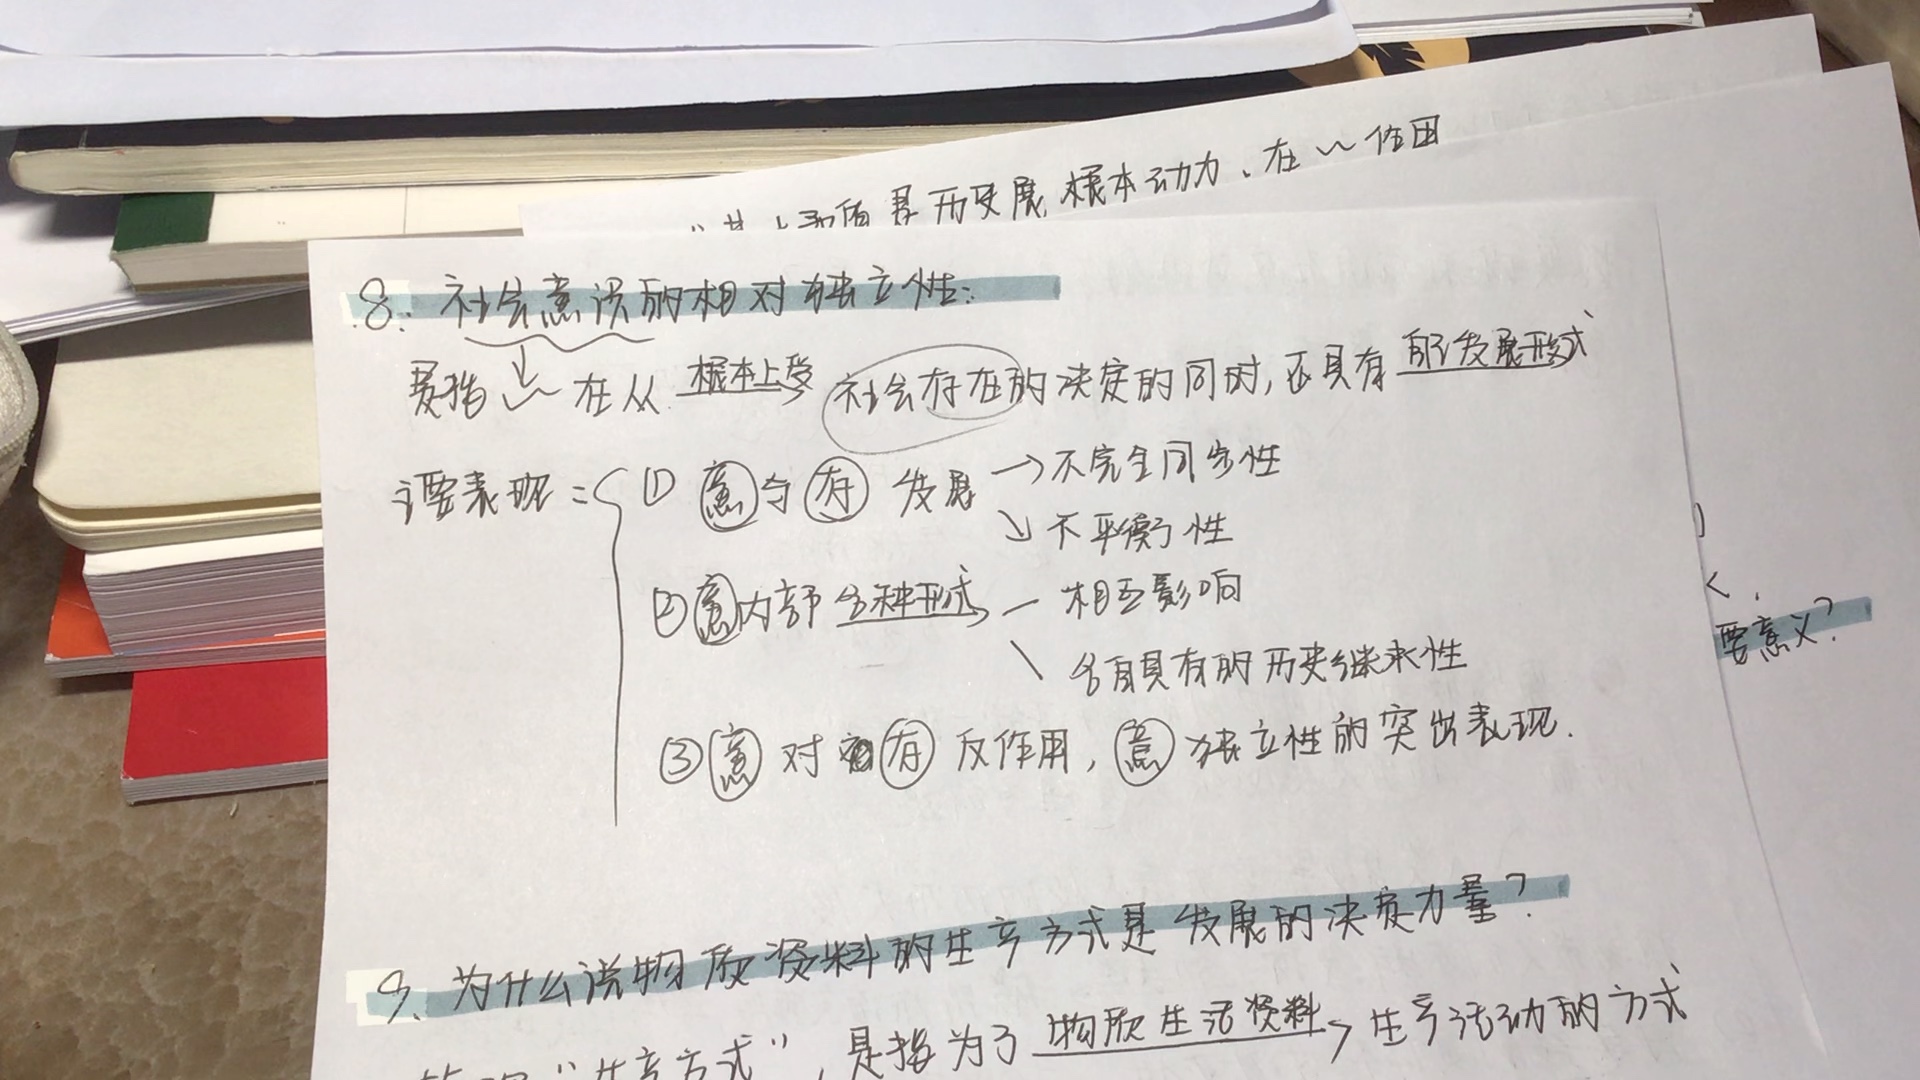 是历史发展根本动力、在~~作用
要意义?
8. 社会意识的相对独立性:
是指~~在从根本上受社会存在的决定的同时,还具有 发展形式
主要表现:
① 意与存 发展 → 不完全同步性
↘ 不平衡性
② 意内部各种形式 — 相互影响
\ 各自具有的历史继承性
③ 意对存反作用, 意独立性的突出表现.
9. 为什么说物质资料的生产方式是发展的决定力量?
“生产方式”,是指为了物质生活资料→生产活动的方式